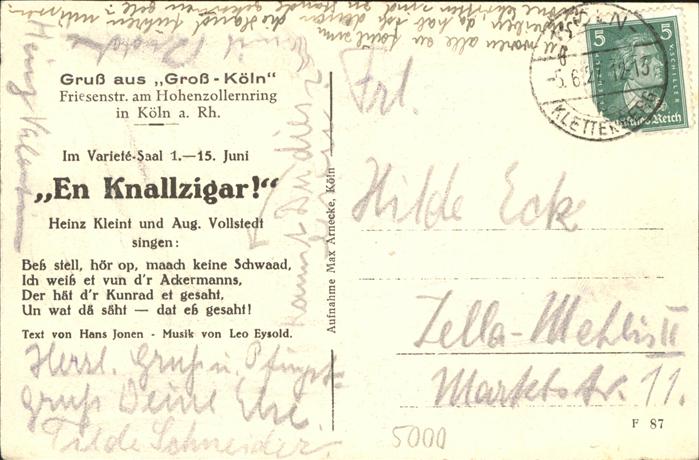 Gruß aus „Groß-Köln"
Friesenstr. am Hohenzollernring
in Köln a. Rh.
Im Varieté-Saal 1.—15. Juni
„En Knallzigar!"
Heinz Kleint und Aug. Vollstedt
singen:
Beß stell, hör op, maach keine Schwaad,
Ich weiß et vun d'r Ackermanns,
Der hät d'r Kunrad et gesaht,
Un wat dä säht — dat eß gesaht!
Text von Hans Jonen - Musik von Leo Eysold.
Herzl. Gruß u. Pfingst-
gruß Deine Else.
Tilde Schneider.
Aufnahme Max Arnecke, Köln
Frl.
Hilde Eck
Zella-Mehlis II
Marktstr. 11.
F 87
5000
5 5
Deutsches Reich
KÖLN
-5.6.27. 12-13
KLETTENBERG
Heinz
kannst Du dies